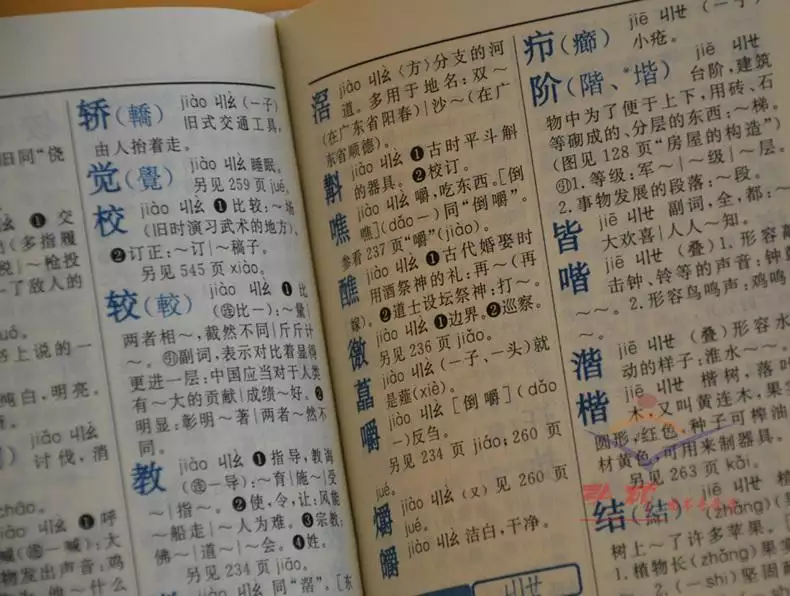 旧同“侥
❶ 交
(多指履
脱|～枪投
～了敌人的
书上说的一
纯白,明亮。
jiào ㄐㄧㄠ
讨伐,消
jiào ㄐㄧㄠ ❶呼
喊(㊣—喊):大
物发出声音:鸡
为 他～什么
轿(轎) jiào ㄐㄧㄠ (—子)
旧式交通工具,
由人抬着走。
觉(覺) jiào ㄐㄧㄠ 睡眠。
另见 259 页 jué。
校 jiào ㄐㄧㄠ ❶比较:～场
(旧时演习武术的地方)。
❷订正:～订|～稿子。
另见 545 页 xiào。
较(較) jiào ㄐㄧㄠ ❶比
(㊣比—):～量|
两者相～,截然不同|斤斤计
～。㊁副词,表示对比着显得
更进一层:中国应当对于人类
有～大的贡献|成绩～好。❷
明显:彰明～著|两者～然不
同。
教 jiào ㄐㄧㄠ ❶指导,教诲
(㊣—导):～育|施～|受
～|指～。❷使,令,让:风能
～船走|～人为难。❸宗教:
佛～|道～|～会。❹姓。
另见 234 页 jiāo。
jiào ㄐㄧㄠ 同“滘”。[东
滘 jiào ㄐㄧㄠ〈方〉分支的河
道。多用于地名:双～
(在广东省阳春)|沙～(在广
东省顺德)。
斠 jiào ㄐㄧㄠ ❶古时平斗斛
的器具。❷校订。
噍 jiào ㄐㄧㄠ 嚼,吃东西。[倒
噍](dǎo—)同“倒嚼”。
参看 237 页“嚼”(jiào)。
醮 jiào ㄐㄧㄠ ❶古代婚娶时
用酒祭神的礼:再～(再
嫁)。❷道士设坛祭神:打～。
徼 jiào ㄐㄧㄠ ❶边界。❷巡察。
另见 236 页 jiǎo。
藠 jiào ㄐㄧㄠ (—子、—头)就
是薤(xiè)。
嚼 jiào ㄐㄧㄠ [倒嚼](dǎo
—)反刍。
另见 234 页 jiáo;260 页
jué。
爝 jiào ㄐㄧㄠ (又)见 260 页
jué。
皭 jiào ㄐㄧㄠ 洁白,干净。
ㄐㄧㄝ
疖(癤) jiē ㄐㄧㄝ (—子)
小疮。
阶(階、堦) jiē ㄐㄧㄝ
台阶,建筑
物中为了便于上下,用砖、石
等砌成的、分层的东西:～梯。
(图见 128 页“房屋的构造”)
㊁1.等级:军～|～级|～层。
2.事物发展的段落:～段。
皆 jiē ㄐㄧㄝ 副词,全,都:～
大欢喜|人人～知。
喈 jiē ㄐㄧㄝ (叠)1.形容敲
击钟、铃等的声音:钟鼓
～～。2.形容鸟鸣声:鸡鸣
～～。
湝 jiē ㄐㄧㄝ (叠)形容水
动的样子:淮水～～。
楷 jiē ㄐㄧㄝ 楷树,落叶
木,又叫黄连木,果实
圆形,红色,种子可榨油
材黄色,可用来制器具。
另见 263 页 kǎi。
结(結) jiē ㄐㄧㄝ
(zhǎng)(果
树上～了许多苹果。
1.植物长(zhǎng)果实
2.(—shi)坚固耐